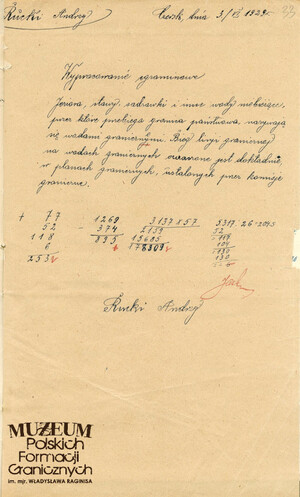 Rücki Andrzej Czork, dnia 3/VI 1929 r.
Wypracowanie egzaminowe
Jeziora, stawy, sadzawki i inne wody niebieżące,
przez które przebiega granica państwowa nazywają
się wodami granicznymi. Bieg linji granicznej
na wodach granicznych oznaczony jest dokładnie
w planach granicznych, ustalonych przez komisje
graniczne.
+ 77 - 1269 3137 x 57
52 374 2159
118 895 15685
6 178809
253
Rucki Andrzej
MUZEUM
Polskich
Formacji
Granicznych
im. mjr. WŁADYSŁAWA RAGINISA